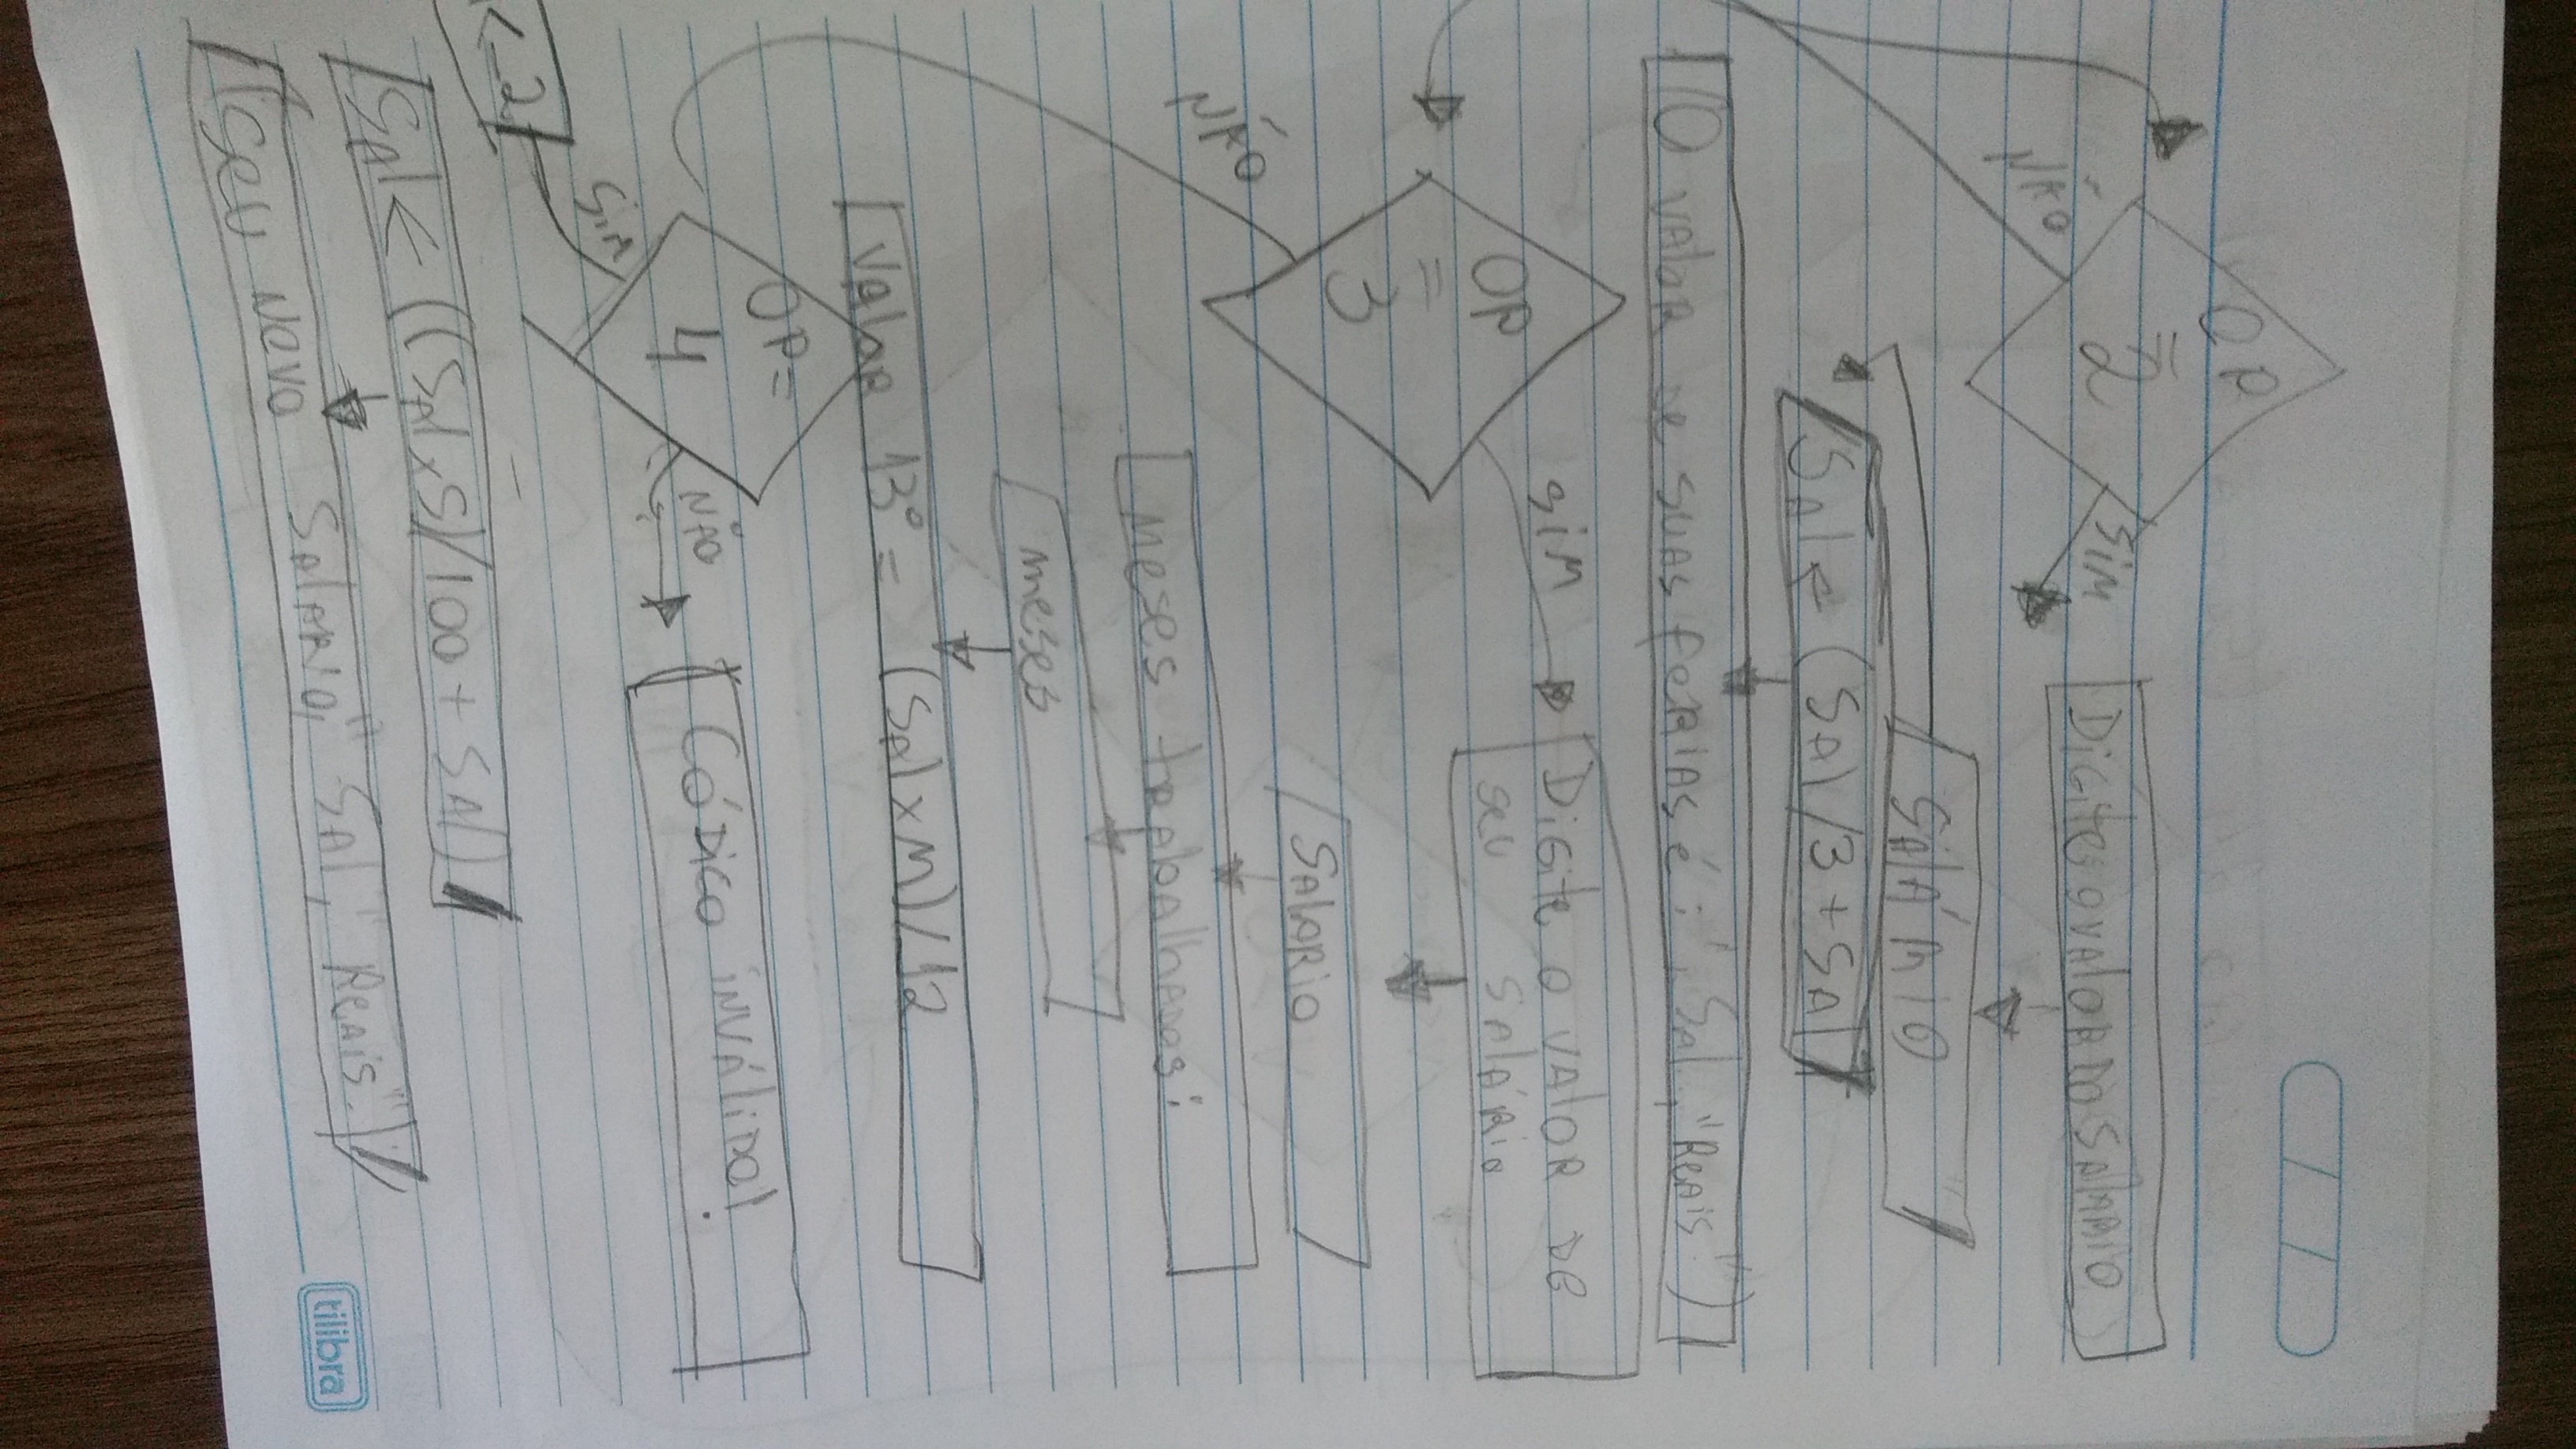 OP
=
2
SIM
NÃO
Digite o valor do SALARIO
SALÁRIO
SAl ← (SAl/3 + SAl)
(O valor de suas ferias é: ", SAl, "Reais.")
OP
=
3
SIM
NÃO
Digite o valor de
seu SALÁRIO
SALARIO
meses trabalhados:
meses
Valor 13º = (SAl x M)/12
OP =
4
NÃO
CÓDIGO INVÁLIDO!
SIM
<-2
SAl ← ((SAl x 5)/100 + SAl)
("seu novo SALARIO," SAl, "Reais.")
tilibra